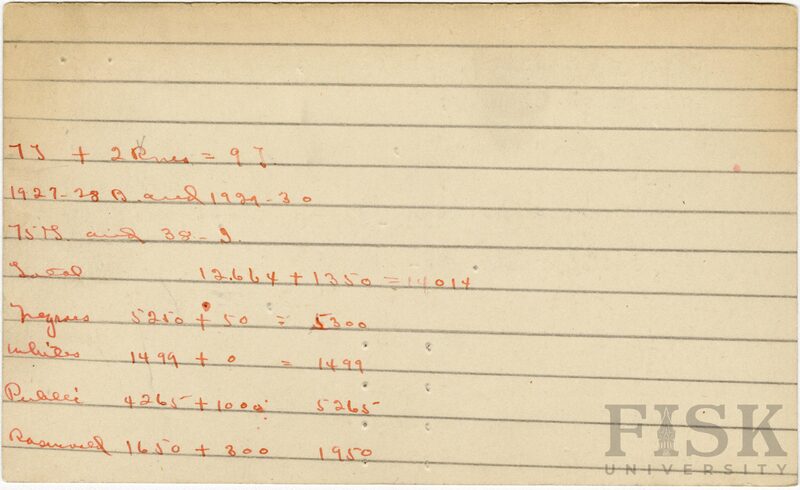 7T + 2 Rms = 9 T.
1927-28 B. and 1929-30
75TS and 38-9.
Total 12.664 + 1350 = 14014
Negroes 5250 + 50 = 5300
Whites 1499 + 0 = 1499
Public 4265 + 1000 5265
Rosenwald 1650 + 300 1950
FISK
UNIVERSITY